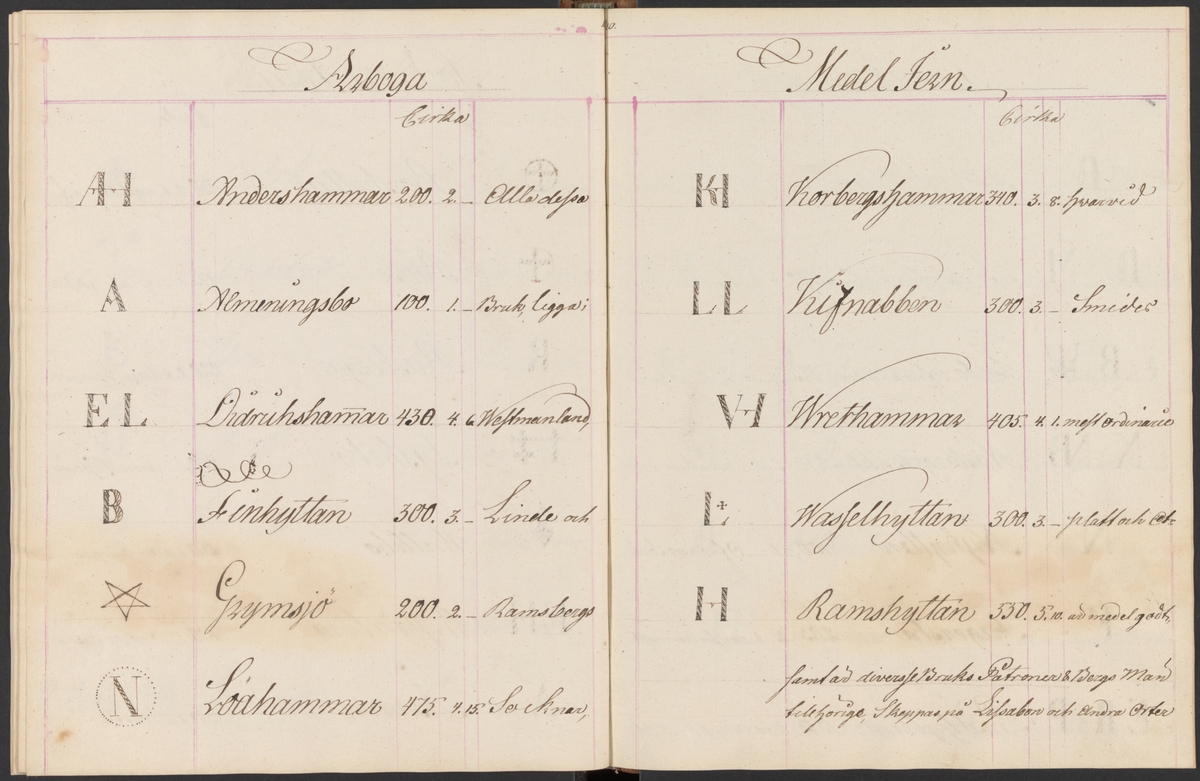 Arboga
Cirka
AH Andershammar 200. 2. – Alla dessa
A Almenningsbo 100. 1. – Bruk, ligga i
EL Didrichshammar 430. 4. 6. Westmanland,
B Finhyttan 300. 3. – Linde och
Grymsjö 200. 2. – Ramsbergs
N Löahammar 475. 4. 15. Socknar,
Medel Jern.
Cirka
KH Korbergshammar 340. 3. 8. hvarvid
LL Kifnabben 300. 3. – Smides
VH Wrethammar 405. 4. 1. mest ordinarie
L Wasselhyttan 300. 3. – platt och
H Ramshyttan 530. 5. 10. ad medel godt,
samt äd diversse Bruks Patroner & Bergs Män
tilhörige, Skeppas på Lissabon och andra Orter